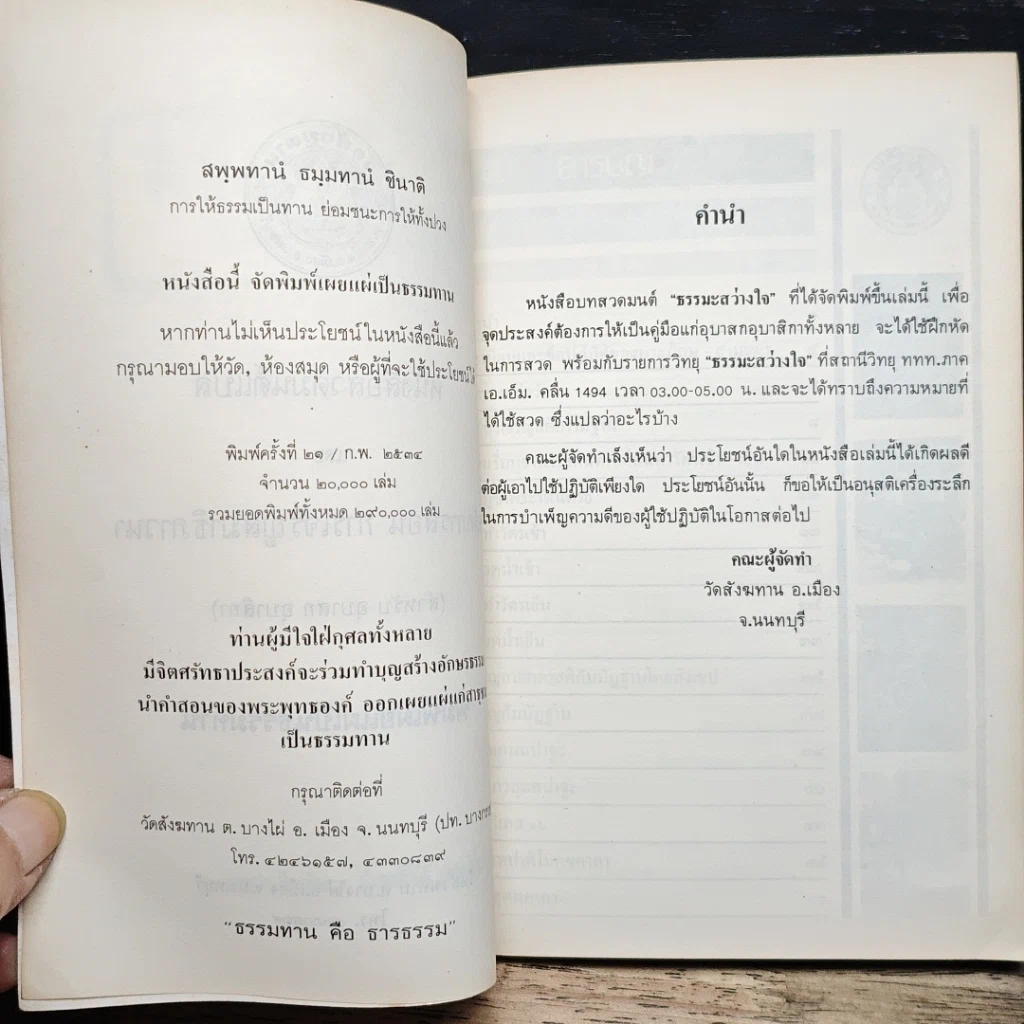 สพฺพทานํ ธมฺมทานํ ชินาติ
การให้ธรรมเป็นทาน ย่อมชนะการให้ทั้งปวง
หนังสือนี้ จัดพิมพ์เผยแผ่เป็นธรรมทาน
หากท่านไม่เห็นประโยชน์ในหนังสือนี้แล้ว
กรุณามอบให้วัด, ห้องสมุด หรือผู้ที่จะใช้ประโยชน์
พิมพ์ครั้งที่ ๒๑ / ก.พ. ๒๕๓๔
จำนวน ๒๐,๐๐๐ เล่ม
รวมยอดพิมพ์ทั้งหมด ๒๙๐,๐๐๐ เล่ม
ท่านผู้มีใจใฝ่กุศลทั้งหลาย
มีจิตศรัทธาประสงค์จะร่วมทำบุญสร้างอักษรธรรม
นำคำสอนของพระพุทธองค์ ออกเผยแผ่แก่
เป็นธรรมทาน
กรุณาติดต่อที่
วัดสังฆทาน ต. บางไผ่ อ. เมือง จ. นนทบุรี (ปท.
โทร. ๔๒๔๖๑๕๗, ๔๓๓๐๘๓๙
"ธรรมทาน คือ ธารธรรม"
คำนำ
หนังสือบทสวดมนต์ "ธรรมะสว่างใจ" ที่ได้จัดพิมพ์ขึ้นเล่มนี้ เพื่อ
จุดประสงค์ต้องการให้เป็นคู่มือแก่อุบาสกอุบาสิกาทั้งหลาย จะได้ใช้ฝึกหัด
ในการสวด พร้อมกับรายการวิทยุ "ธรรมะสว่างใจ" ที่สถานีวิทยุ ททท.ภาค
เอ.เอ็ม. คลื่น 1494 เวลา 03.00-05.00 น. และจะได้ทราบถึงความหมายที่
ได้ใช้สวด ซึ่งแปลว่าอะไรบ้าง
คณะผู้จัดทำเล็งเห็นว่า ประโยชน์อันใดในหนังสือเล่มนี้ได้เกิดผลดี
ต่อผู้เอาไปใช้ปฏิบัติเพียงใด ประโยชน์อันนั้น ก็ขอให้เป็นอนุสติเครื่องระลึก
ในการบำเพ็ญความดีของผู้ใช้ปฏิบัติในโอกาสต่อไป
คณะผู้จัดทำ
วัดสังฆทาน อ.เมือง
จ.นนทบุรี